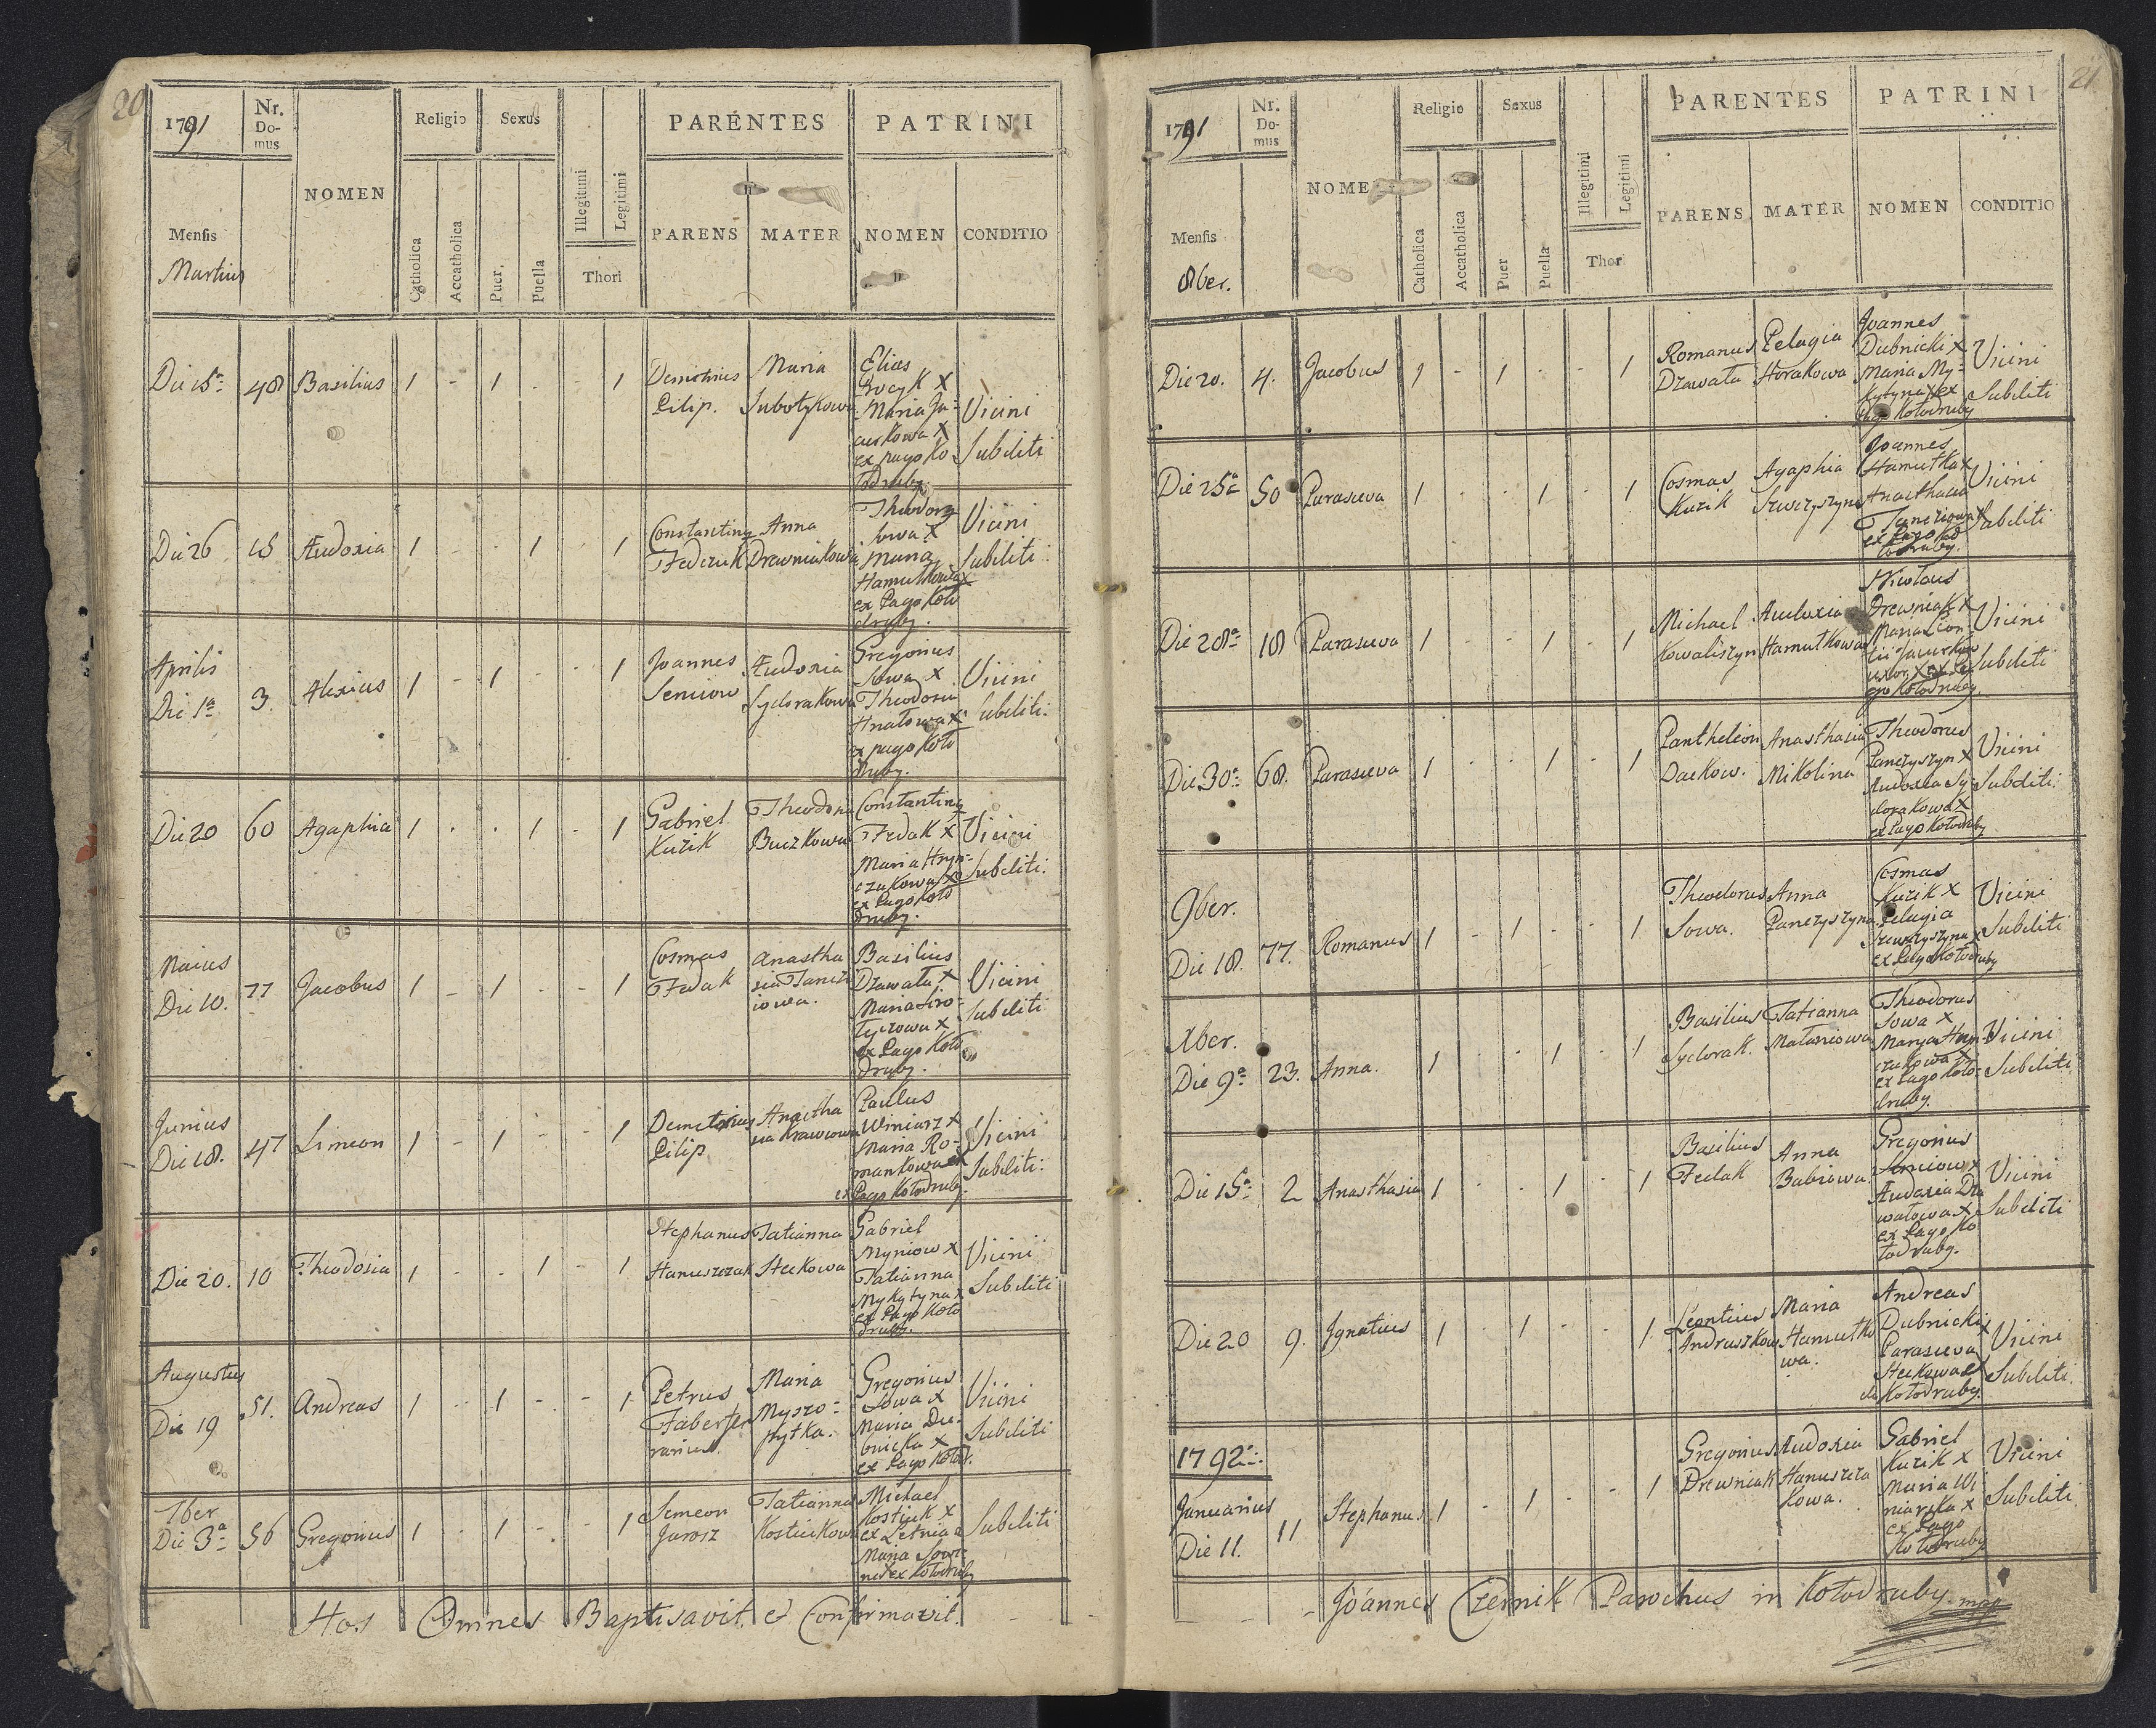 20
1791
Nr. Do-mus
NOMEN
Religio
Sexus
PARENTES
PATRINI
Mensis
Martius
Catholica
Accatholica
Puer.
Puella
Illegitimi
Legitimi
Thori
PARENS
MATER
NOMEN
CONDITIO
Die 15ta 48 Basilius 1 - 1 - - 1
Demitrius
Pilip.
Maria
Elias
Maria
ex pago Ko
łodruby
Vicini
Subditi
Die 26 15 Eudoxia 1 - - 1 - 1
Fedczuk
Anna
Drewniakowa
Sowa X
Maria
Hamutkowa X
ex Pago Koło
druby.
Vicini
Subditi
Aprilis
Die 1a 3. Alexius 1 - 1 - - 1
Joannes
Seniow
Eudoxia
Sydorakowa
Gregorius
Sowa X
Theodora
Hnatowa X
ex pago Koło
druby.
Vicini
Subditi.
Die 20 60 Agaphia 1 - - 1 - 1
Gabriel
Kuzik
Theodora
Buczkowa
Constantinus
Fedak X
Maria Hryn-
czukowa X
ex Pago Koło
druby.
Vicini
Subditi.
Maius
Die 10. 77 Jacobus 1 - 1 - - 1
Cosmas
Fedak
Anastha
sia
iowa.
Basilius
Dzawała X
Maria
ex Pago Koło
druby.
Vicini
Subditi
Junius
Die 18. 47 Simeon 1 - 1 - - 1
Demetrius
Pilip
Anastha
sia Krawcowa
Paulus
Winiarz X
Maria Ro-
mankowa X
ex Pago Kołodruby.
Vicini
Subditi.
Die 20. 10 Theodosia 1 - - 1 - 1
Stephanus
Hanuszczak
Tatianna
Steckowa
Gabriel
Myniow X
Tatianna
Mykytyna X
ex Pago Koło
druby.
Vicini
Subditi
Augustus
Die 19 51. Andreas 1 - 1 - - 1
Petrus
Faber fer
rarius.
Maria
Gregorius
Sowa X
Maria Du-
bnicka X
ex Pago Kołod.
Vicini
Subditi
7ber
Die 3a 56 Gregorius 1 - 1 - - 1
Simeon
Jarosz
Tatianna
Kostiukowa
Michael
Kostiuk X
ex Letnia
Maria
ex Kołodruby
Subditi
Hos Omnes Baptisavit et Confirmavit.
21
1791
Nr. Do-mus
NOME
Religio
Sexus
PARENTES
PATRINI
Mensis
8ber.
Catholica
Accatholica
Puer
Puella
Illegitimi
Legitimi
Thor
PARENS
MATER
NOMEN
CONDITIO
Die 20. 4. Jacobus 1 - 1 - - 1
Romanus
Dzawała
Pelagia
Horakowa
Joannes
Dubnicki X
Maria My-
kytyna X ex
Pago Kołodruby
Vicini
Subditi
Die 25ta 50 Parasceva 1 - - 1 - 1
Cosmas
Kuzik
Agaphia
Szewczyszyna
Joannes
Hamutka X
Anasthasia
ex Pago Ko
łodruby.
Vicini
Subditi
Die 28a 18 Parasceva 1 - - 1 - 1
Michael
Kowaliszyn
Eudoxia
Hamutkowa
Nicolaus
Drewniak X
Maria Leon-
tii
uxor X ex Pa
go Kołodruby.
Vicini
Subditi
Die 30a 68. Parasceva 1 - - 1 - 1
Pantheleon
Dackow.
Anasthasia
Mikolina
Theodorus
Panczyszyn X
Eudoxia Sy-
dorakowa X
ex Pago Kołodruby
Vicini
Subditi.
9ber.
Die 18. 77. Romanus 1 - 1 - - 1
Theodorus
Sowa.
Anna
Panczyszyna
Cosmas
Kuzik X
Pelagia
Szewczyszyna X
ex Pago Kołodruby
Vicini
Subditi
Xber.
Die 9a 23. Anna. 1 - - 1 - 1
Basilius
Sydorak.
Tatianna
Theodorus
Sowa X
Marya Hryn-
czukowa X
ex Pago Koło-
druby.
Vicini
Subditi
Die 15a 2 Anasthasia 1 - - 1 - 1
Basilius
Fedak
Anna
Babiowa
Gregorius
Seniow X
Eudoxia Dza
wałowa X
ex Pago Ko
łodruby.
Vicini
Subditi
Die 20 9. Ignatius 1 - 1 - - 1.
Leontius
Andruszkow
Maria
Hamutko
wa.
Andreas
Dubnicki X
Parasceva
Steckowa X
de Kołodruby.
Vicini
Subditi.
1792.
Januarius
Die 11. 11 Stephanus 1 - 1 - - 1
Gregorius
Drewniak
Eudoxia
Hanuszcza
kowa.
Gabriel
Kuzik X
Maria Wi
niarska X
ex Pago
Kołodruby
Vicini
Subditi.
Joannes Czernik Parochus in Kołodruby mpp